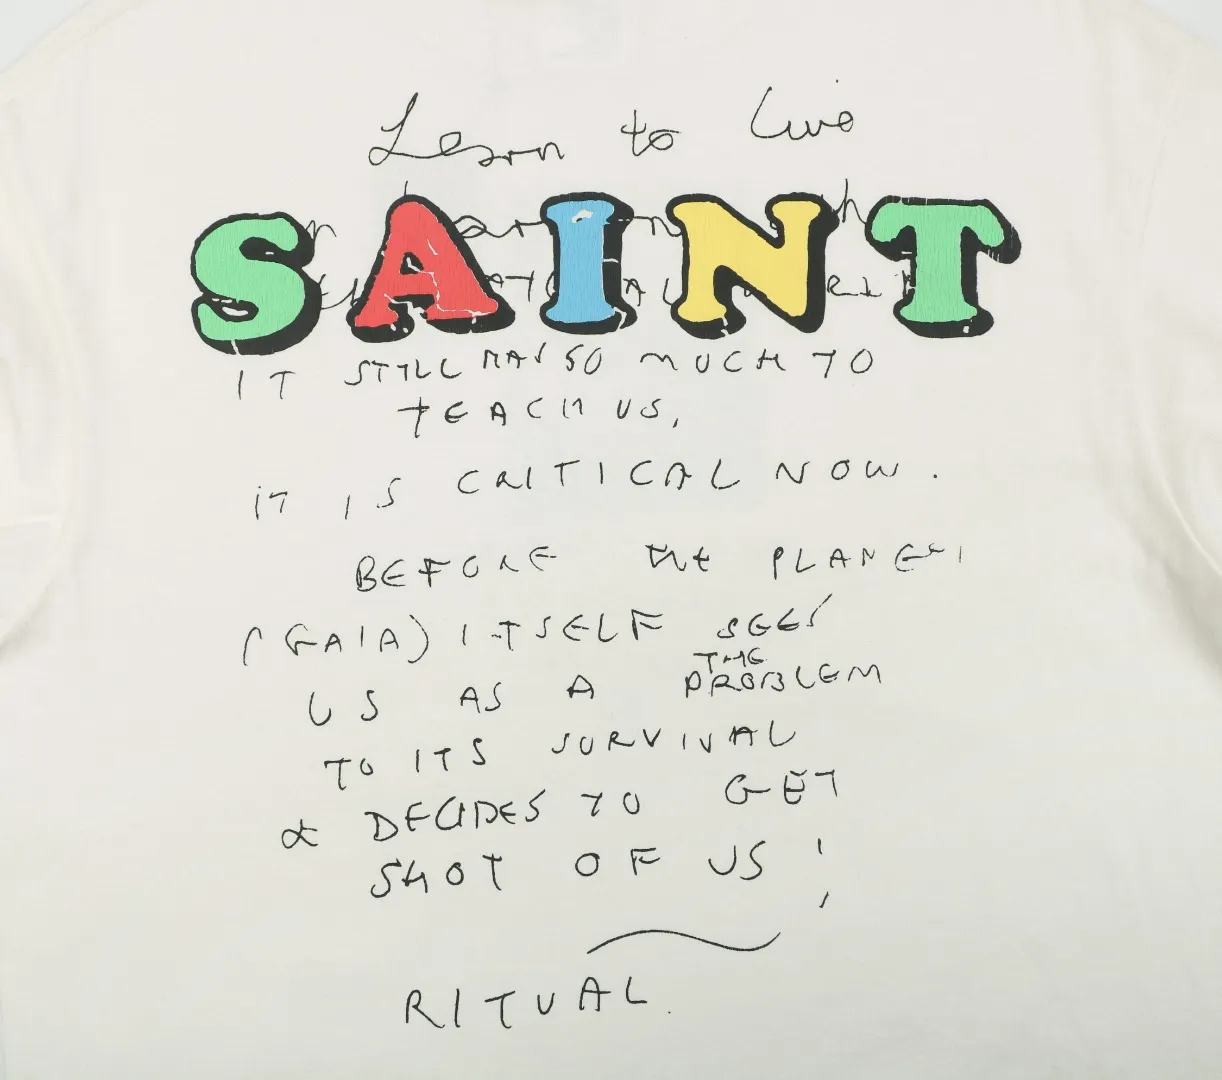 Learn to Live
SAINT
IT STILL HAS SO MUCH TO
TEACH US,
IT IS CRITICAL NOW.
BEFORE the PLANET
(GAIA) ITSELF SEES
US AS A THE PROBLEM
TO ITS SURVIVAL
& DECIDES TO GET
SHOT OF US!
RITUAL.